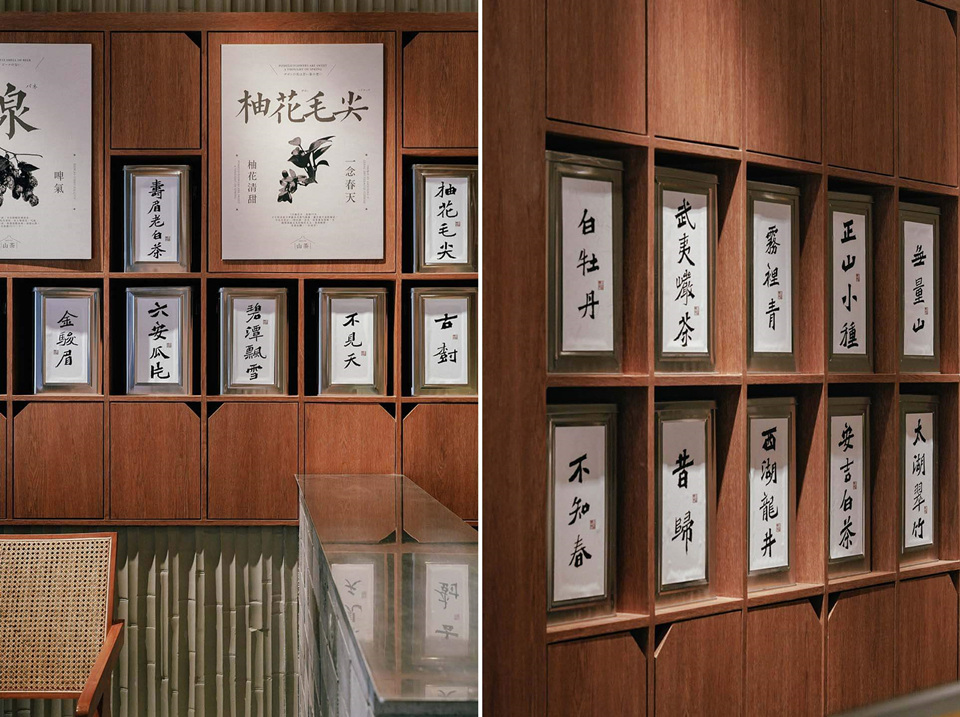 泉
啤氣
柚花毛尖
柚花清甜
一念春天
山茶
壽眉老白茶
柚花毛尖
金駿眉
六安瓜片
碧潭飄雪
不見天
古樹
白牡丹
武夷巖茶
霧裡青
正山小種
無量山
不知春
昔歸
西湖龍井
安吉白茶
太湖翠竹